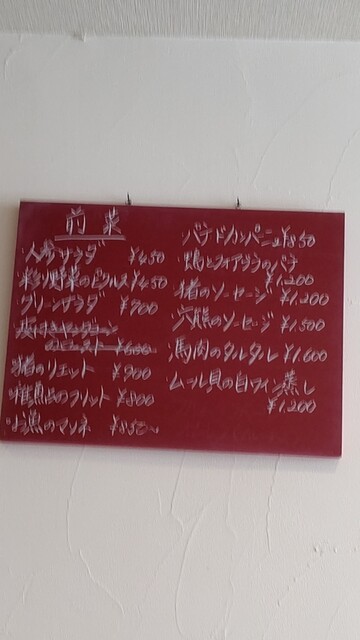 前菜
・人参サラダ ¥450
・彩り野菜のピクルス ¥450
・グリーンサラダ ¥700
のロースト ¥600
・猪のリエット ¥900
・稚魚のフリット ¥800
・お魚のマリネ ¥850〜
・パテドカンパーニュ ¥850
・鴨とフォアグラのパテ
¥1,200
・猪のソーセージ ¥1,200
・穴熊のソーセージ ¥1,500
・馬肉のタルタル ¥1,600
・ムール貝の白ワイン蒸し
¥1,200